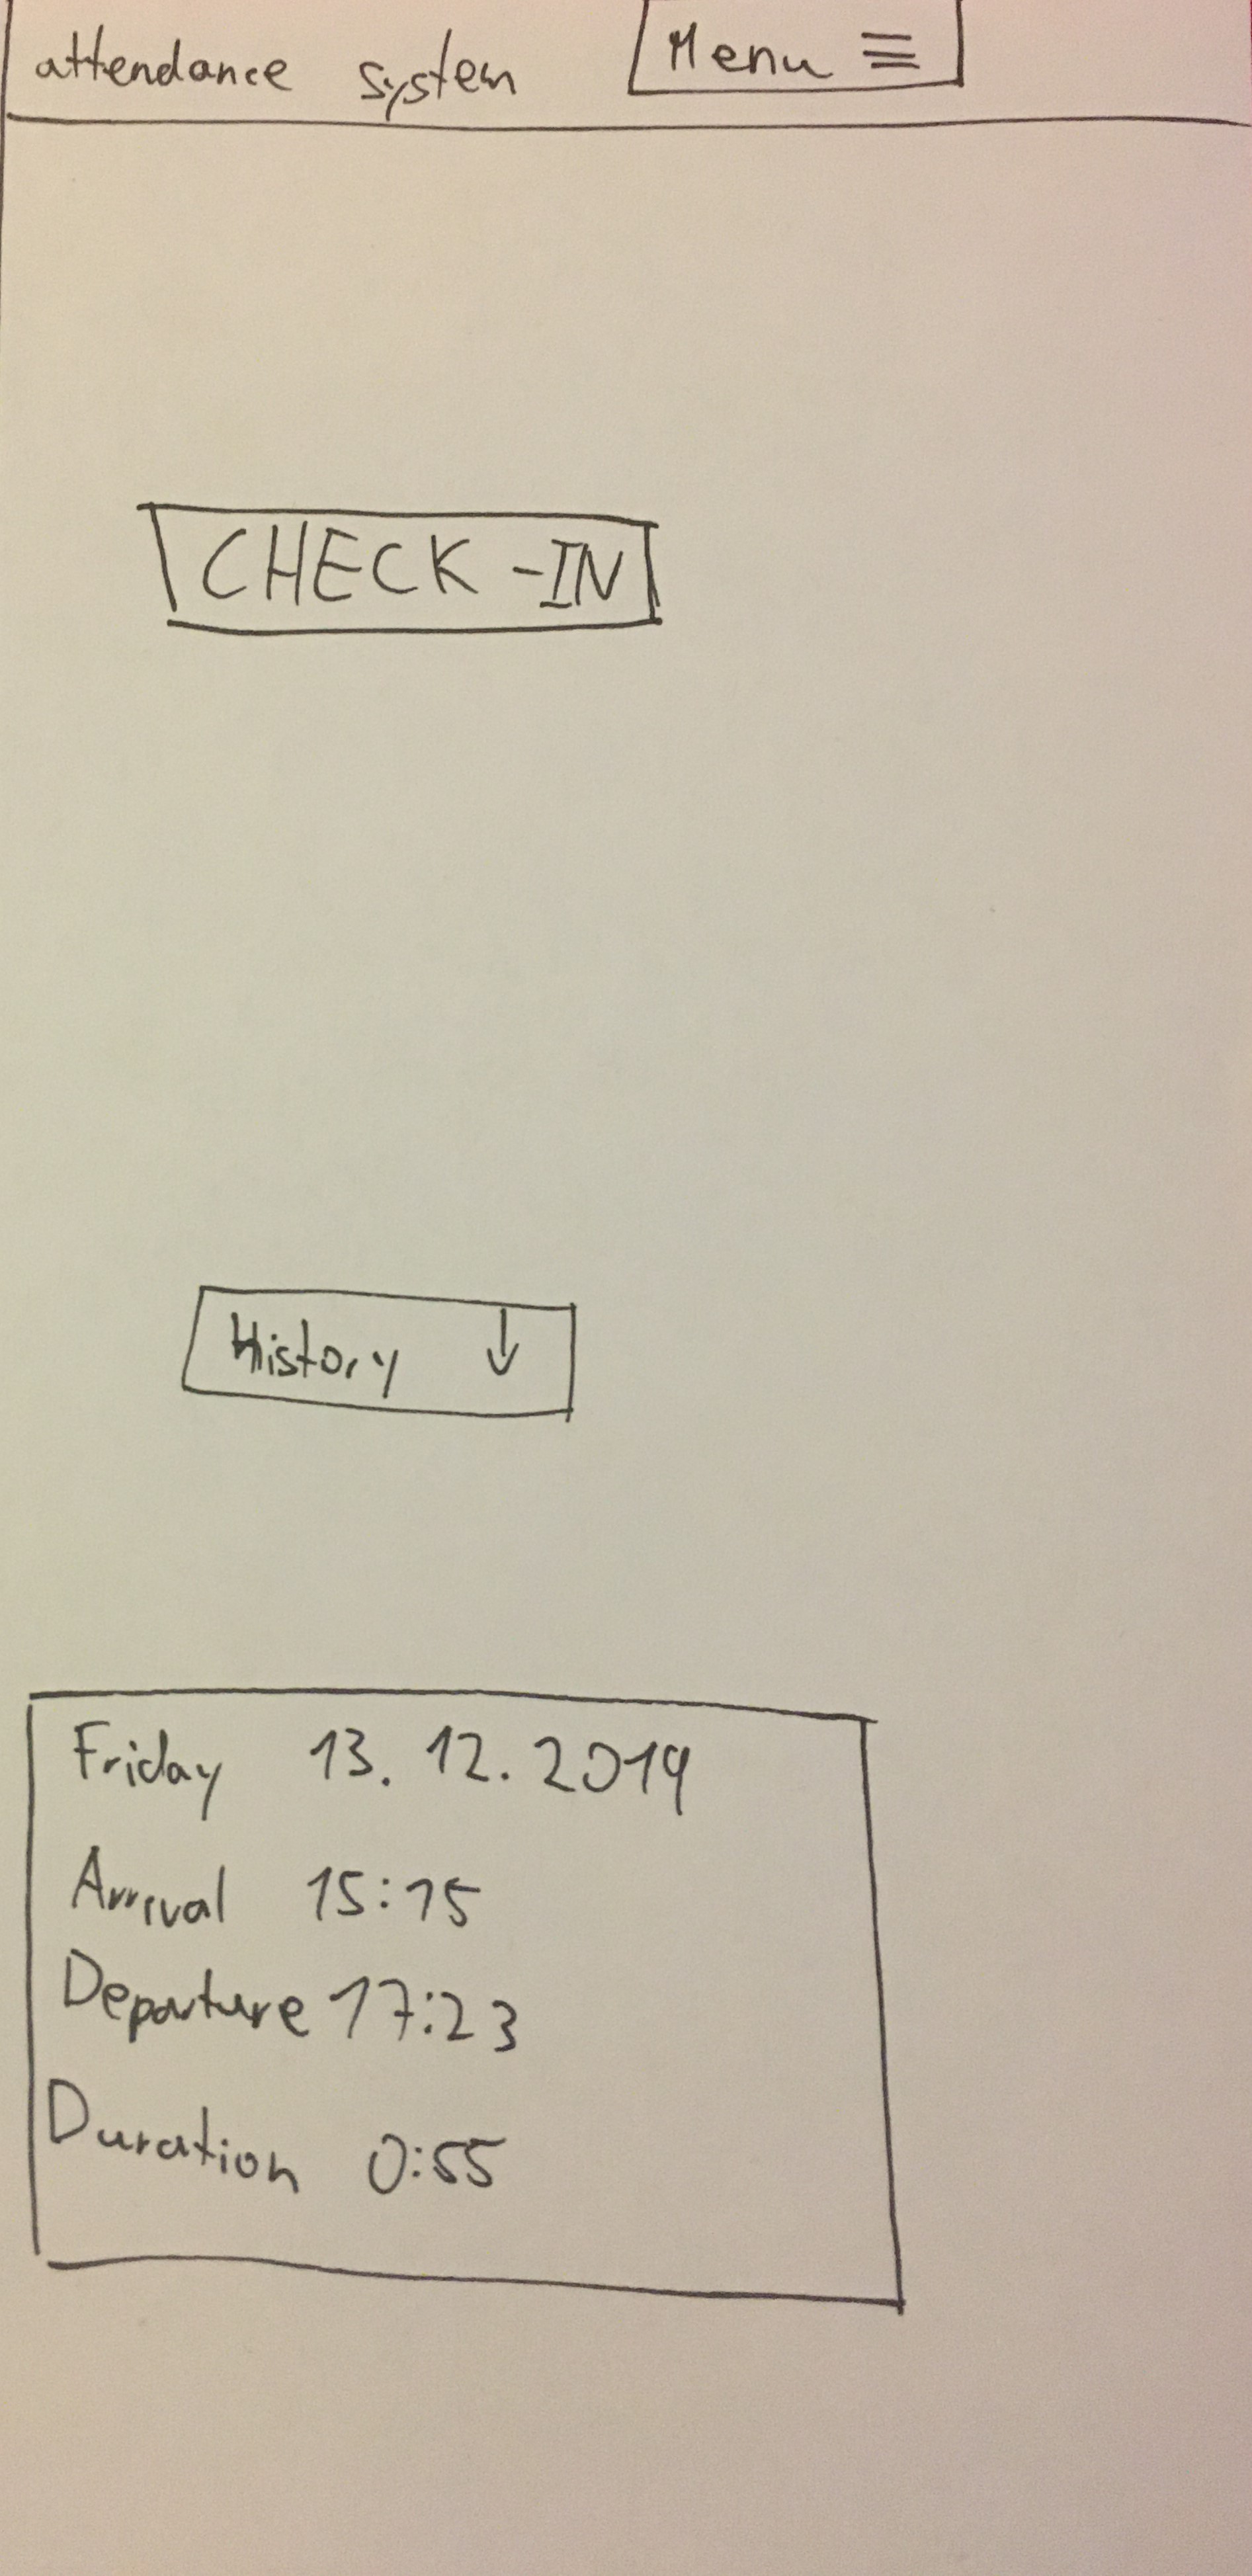 attendance system Menu ≡
CHECK-IN
History ↓
Friday 13. 12. 2019
Arrival 15:15
Departure 17:23
Duration 0:55